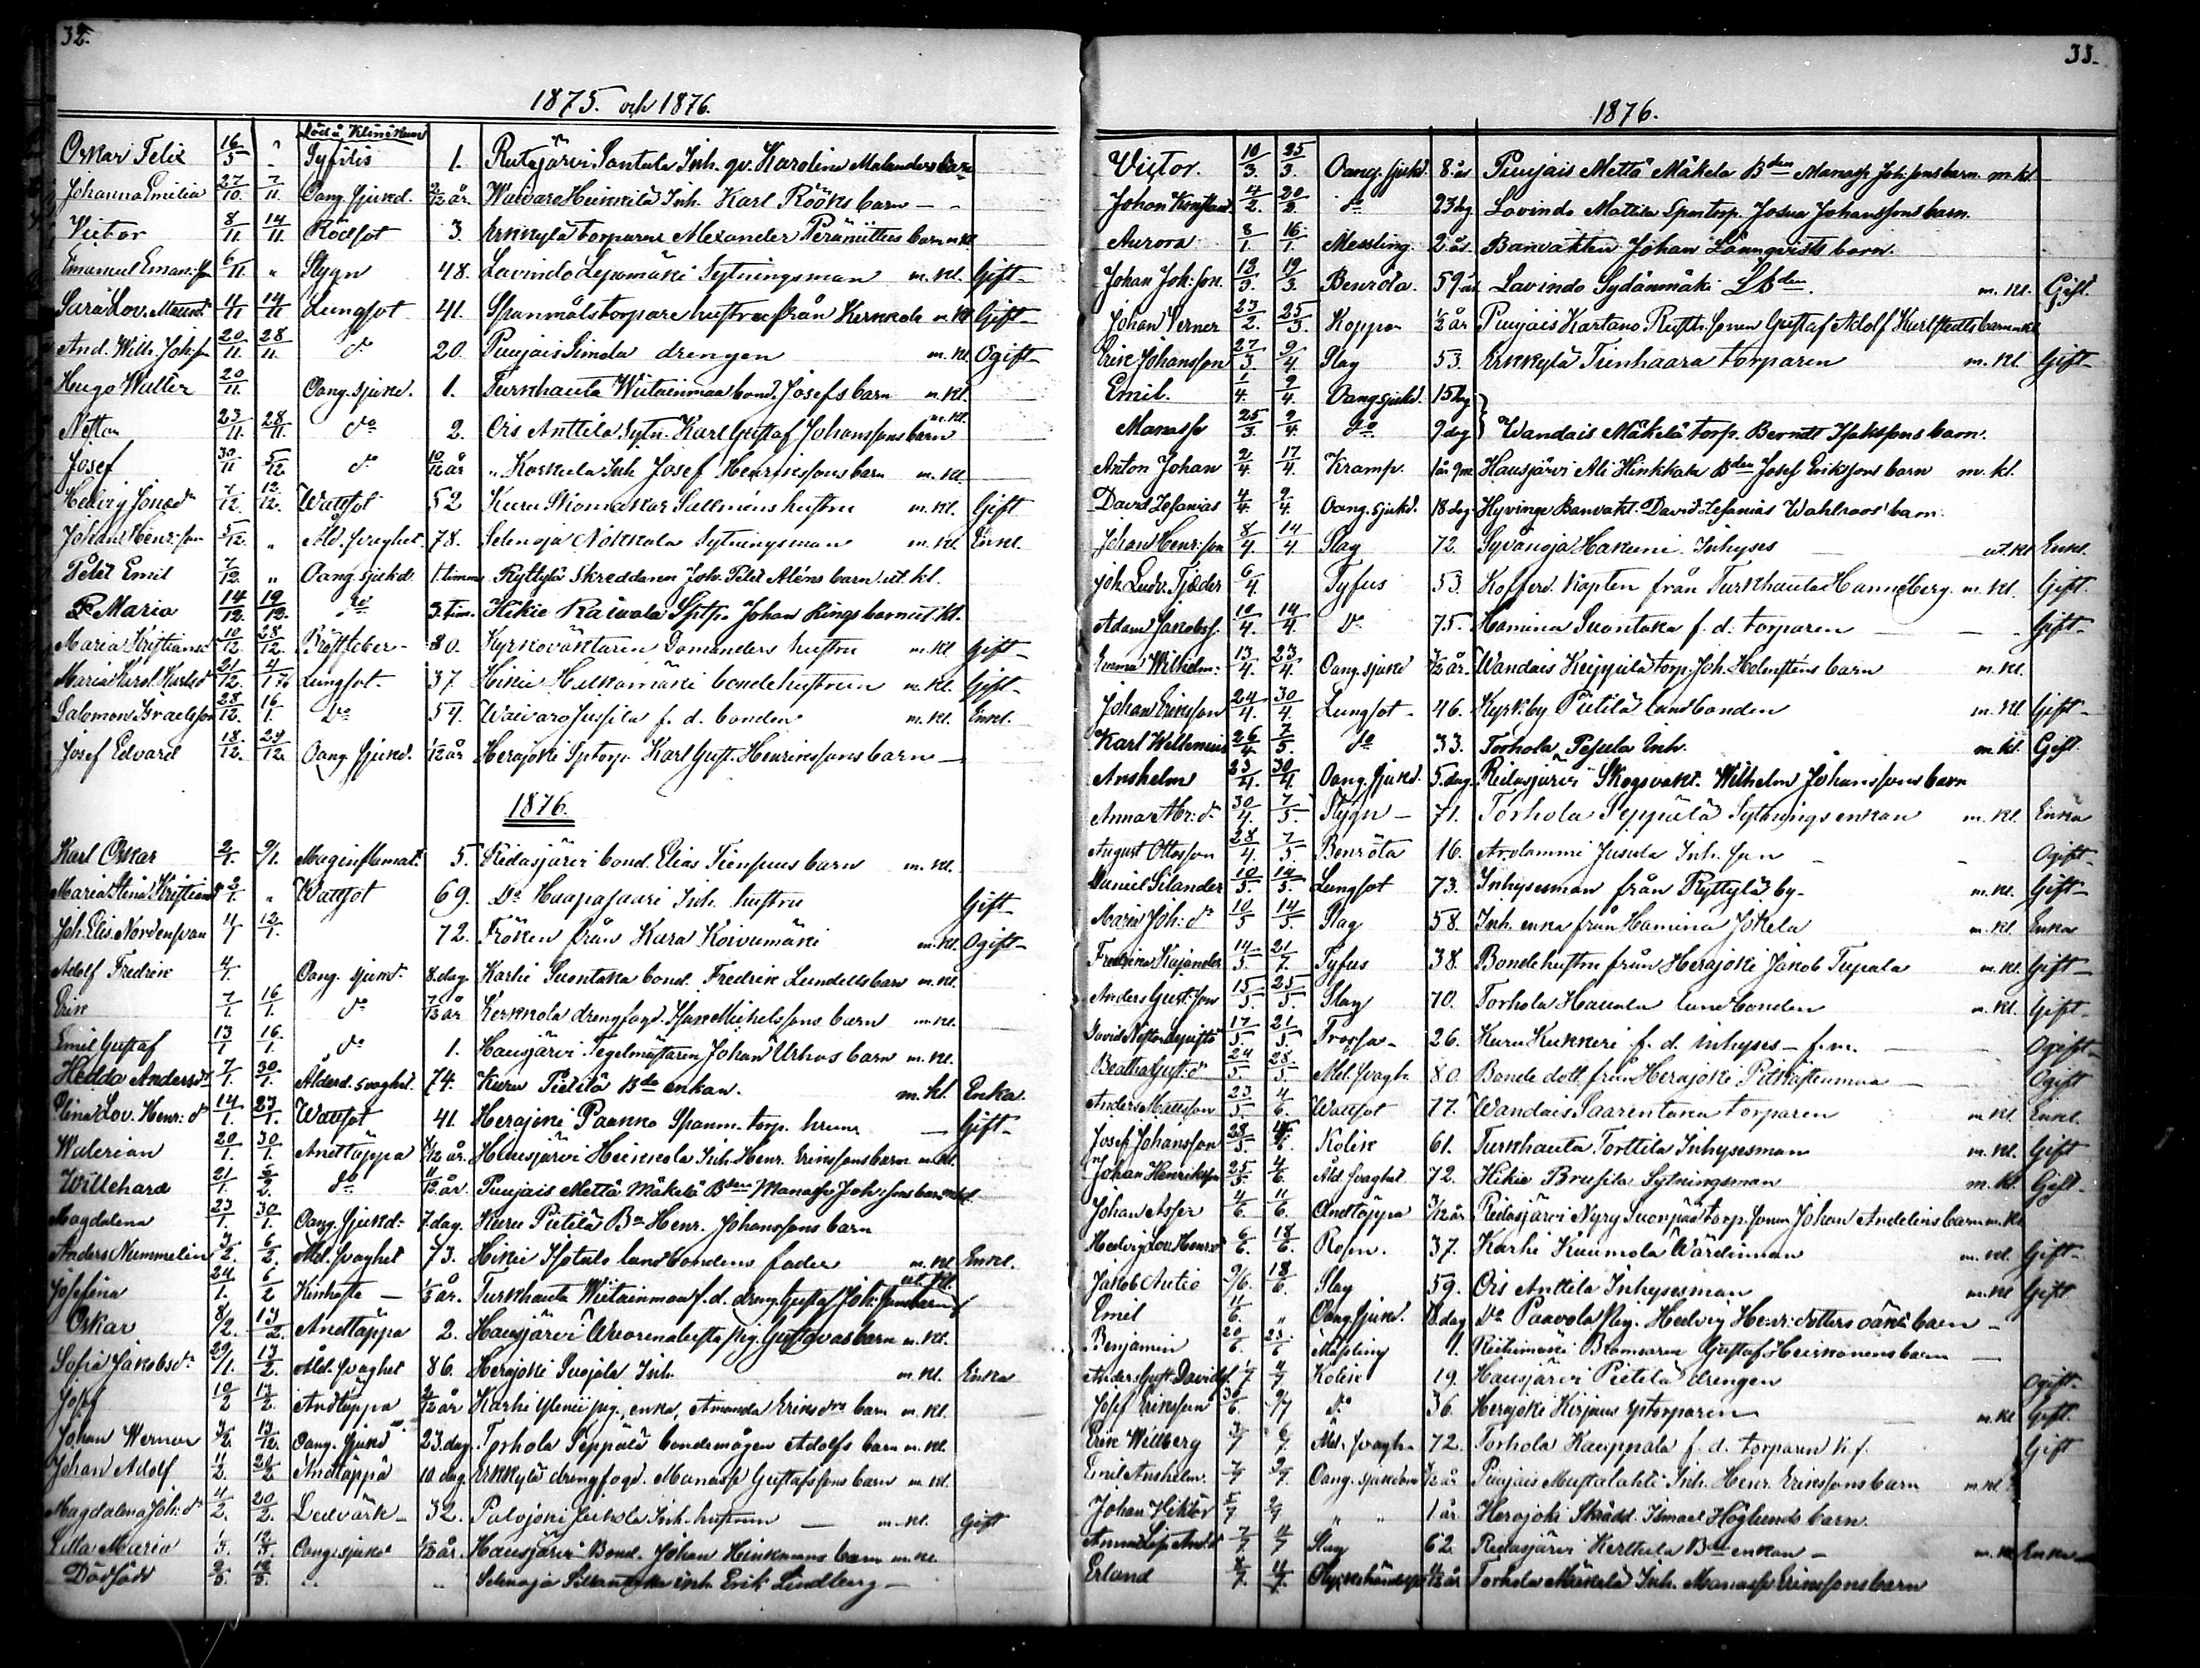 32.
1875. och 1876.
Död å Kliniken
Oskar Felix 16/5 " Syfilis 1. Ridasjärvi Santala Inh. qv. Karolina Malanders barn
Johanna Emilia 27/10. 7/11. Oang. sjukd. 2/12 år. Waivara Heikkilä Inh. Karl Rööks barn
Victor 8/11. 14/11. Rödsot 3. Erkkylä torparen Alexander barn m.kl.
Emanuel Eman:son 6/11 " Stygn 48. Lavindo Lepomäki Sytningsman m.kl. Gift
Sara Lov. 4/11 14/11 Lungsot 41. Spanmålstorpare hustru från Kerkola m.kl. Gift
And. Wilh. Joh:son 20/11. 28/11. d:o 20. Puujais Simola drengen m.kl. Ogift
Hugo Walter 20/11. Oang. sjukd. 1. Turkhauta Wiitainmaa bond. Josefs barn m.kl.
23/11. 28/11. d:o 2. Ois Anttila Sytn. Karl Gustaf Johanssons barn m.kl.
Josef 30/11 5/12 d:o 10/12 år " Korkula Inh. Josef Henrikssons barn m.kl.
Hedvig 7/12. 12/12. Wattsot 52 Kuru Skomakar Sallmens hustru m.kl. Gift
Johan Henr:son 5/12. " Åld. svaghet 78. Selenoja Nokkala Sytningsman m.kl. Enkl.
Petter Emil 7/12. " Oang. sjukd. 1. timme Ryttylä Skreddaren Joh. Alens barn ut.kl.
Maria 14/12. 19/12. d:o 3. tim. Hikie Raiwala Sptp. Johan Rings barn ut.kl.
Maria Kristiansd:r 10/12. 28/12. Bröstfeber 80. Kyrkoväktaren Domanders hustru m.kl. Gift
Maria Karol. Karlsd:r 21/12. 4/1 76 Lungsot 37 Hikie Hulkomäki bondehustrun m.kl. Gift
Salomon Israelsson 28/12. 16/1. d:o 54. Waivaro Jussila f.d. bonden m.kl. Enkl.
Josef Edvard 18/12. 29/12. Oang. sjukd. 1/12 år Herajoki Sptorp. Karl Gust. Henrikssons barn
1876.
Karl Oskar 2/1. 9/1. Maginflamat. 5. Ridasjärvi bond. Elias Tiensuus barn m.kl.
Maria Stina Kristiansd. 2/1. " Wattsot 69. D:o Haapasaari Inh. hustru Gift
Joh. Elis. Nordensvan 4/1 12/1. 72. Fröken från Kara Koivumäki m.kl. Ogift
Adolf Fredrik 4/1. Oang. sjukd. 8. dag. Karhi Suontaka bond. Fredrik Lundells barn m.kl.
Erik 7/1. 16/1. d:o 7/12 år Kerkkola drengfogd. Isak Mickelssons barn m.kl.
Emil Gustaf 13/1 16/1. d:o 1. Hausjärvi Tegelmästaren Johan Urhos barn m.kl.
Hedda Andersd:r 7/1. 30/1. Ålderd. svaghet 74. Kuru Pietilä Bde enkan. m.kl. Enka.
Stina Lov. Henr:d:r 14/1. 23/1. Wattsot 41. Herajoki Paukko Spanm. torp. hrun Gift
Walerian 20/1. 30/1. Andtäppa /12 år. Hausjärvi Heikkola Inh. Henr. Erikssons barn m.kl.
Willehard 21/1. 6/2. d:o 11/12 år. Puujais Mettä Mäkelä Bden Manasse Joh:sons barn m.kl.
Magdalena 23/1. 30/1. Oang. sjukd. 7 dag. Kuru Pietilä Bn Henr. Johanssons barn
Anders Nummelin 3/2. 6/2. Åld. svaghet 73. Hikie Isotalo landbondens fader m.kl. Enkl.
Josefina 24/1. 6/2 Kikhosta 1/2 år. Turkhauta Wiitainmaa f.d. dreng. Gustaf Joh:sons barn ut.kl.
Oskar 8/2. 13/2. Andtäppa 2. Hausjärvi pig. Gustavas barn m.kl.
Sofia Jakobsd:r 29/1. 13/2. Åld. svaghet 86. Herajoki Suojala Inh. m.kl. Enka
Josef 10/2 13/2. Andtäppa 2/12 år Karhi pig. enka, Amanda Eriksd:rs barn m.kl.
Johan Werner 3/2. 13/2. Oang. sjukd 23. dag. Torhola Seppälä bondemågen Adolfs barn m.kl.
Johan Adolf 11/2. 20/2 Andtäppa 10 dag. Erkkylä drengfogd. Manasse Gustafssons barn m.kl.
Magdalena Joh:d:r 4/2. 20/2. Ledvärk 32. Palojoki Inh. hustrun m.kl. Gift
Lilla Maria Oang. sjukd år. Hausjärvi Bond. Johan Heikmans barn m.kl.
Dödfödd Selenoja inh. Erik Lindberg

33.
1876.
Victor. 10/3. 25/3. Oang. sjukd. 8 år Puujais Mettä Mäkelä Bden Manasse Joh:sons barn m.kl.
Johan Konstant. 4/2. 20/2. d:o 23 dg Lavindo Mattila Spantorp. Josua Johanssons barn.
Aurora 8/1. 16/1. Messling. 2 år. Banvakten Johan Lönnqvists barn.
Johan Joh:son. 12/3. 19/3. Benröta. 59 år Lavindo Sydänmäki LBden. m.kl. Gift.
Johan Verner 23/2. 25/3. Koppor 1/2 år Puujais Kartano Rusth. sonen Gustaf Adolf Karlstedts barn m.kl.
Erik Johansson 27/3. 9/4. Slag 53. Erkkylä Tiinhaara torparen m.kl. Gift
Emil. 1/4. 9/4. Oang sjukd. 15 dg
Manasse 25/3. 9/4. d:o 9 dg } Wandais Mäkelä torp. Berndt Isakssons barn.
Anton Johan 2/4. 17/4. Kramp. 1 år 9 m. Hausjärvi Ali Hinkkala Bden Josef Erikssons barn m.kl.
David Zefanias 4/4. 9/4. Oang. sjukd. 18 dag. Hyvinge Banvakt. David Zefanias Wahlroos' barn.
Johan Henr:son 8/4. 14/4 Slag 72. Syvänoja Hakuni Inhyses ut.kl Enkl.
Joh. Ludv. Tjäder 6/4. Tyfus 53. Kofferd. Kapten från Turkhauta Hanneberg. m.kl. Gift.
Adam Jakobss. 10/4. 14/4. d:o 75. Hamina Suontaka f.d. torparen Gift
Emma Wilhelm: 13/4. 23/4. Oang. sjukd /12 år. Wandais Keippilä torp. Joh. Helmsténs barn m.kl.
Johan Eriksson 24/4. 30/4. Lungsot 46. Kyrkby Pietilä landbonden m.kl. Gift
Karl Wellenius 26/4. 7/5. d:o 33. Torhola Pesula Inh. m.kl. Gift.
Anshelm 23/4. 30/4. Oang. sjukd. 5. dag. Ridasjärvi Skogsvakt. Wilhelm Johanssons barn
Anna Mr:d:r 30/4. 7/5. Stygn 71. Torhola Seppälä Sytningsenkan m.kl. Enka
August Ottosson 28/4. 7/5. Benröta 16. Arolammi Jusula Inh. son Ogift
Daniel Silander 10/5. 14/5. Lungsot 73. Inhysesman från Ryttylä by. m.kl. Gift
Maria Joh:d:r 10/5 14/5. Slag 58. Inh. enka från Hamina Jokela m.kl. Enka
Fredrika Kajander 14/5. 21/ . Tyfus 38. Bondehustru från Herajoki Jakob Tupala m.kl. Gift
Anders Gust:son 15/5. 25/5. Slag 70. Torhola Haukala landbonden m.kl. Gift
David Nestor 17/5. 21/5. Frossa 26. Kuru Kukkeri f.d. inhyses Ogift
Beatha Gust:d:r 24/5. 28/5. Åld. svagh. 80. Bonde dott. från Herajoki Ogift
Anders Mattsson 23/5. 4/6. Wattsot 77. Wandais Saarentaka torparen m.kl. Enkl.
Josef Johansson 28/5. 4/6. Kolik 61. Turkhauta Torttila Inhysesman m.kl. Gift
Johan Henriksson 25/5 4/6. Åld. svaghet 72. Hikie Brusila Sytningsman m.kl. Gift.
Johan Asser 4/6. 11/6. Andtäppa 3/12 år Ridasjärvi Nyry Suonpää torp. sonen Johan Andelins barn m.kl.
Hedvig Lov. Henrsd 6/6. 18/6. Rosen. 37. Karhi Kuumola Wärdinnan m.kl. Gift
Jakob Antio 9/6. 18/6. Slag 59. Ois Anttila Inhysesman m.kl. Gift
Emil 11/6. " Oang. sjukd. 18 dag D:o Paavola Pig. Hedvig Henr:dotters oäkt. barn
Benjamin 20/6 25/6 Mässling 1. Riihimäki Bromsaren Gustaf Heikkonens barn
Anders Gust. Davids. 1/7 4/7 Kolik 19. Hausjärvi Pietilä drengen Ogift
Josef Eriksson 30/6. 9/7 d:o 36. Herajoki Kirjans sptorparen m.kl. Gift.
Erik Willberg 3/7 6/7. Åld. svagh. 72. Torhola Kauppala f.d. torparen Gift
Emil Anshelm. 7/7 9/7. Oang. sjukdom /12 år Puujais Mustalahti Inh. Henr. Erikssons barn m.kl.
Johan Viktor 5/7 9/7 " " 1 år Herajoki Skrädd. Ismael Höglunds barn.
Anna Lis. And.d. 7/7 4/7 Slag 62. Ridasjärvi Kerkkola Bde enkan m.kl. Enka
Erland 8/7. 11/7. Olyckshändelse år Torhola Mäkelä Inh. Manasse Erikssons barn